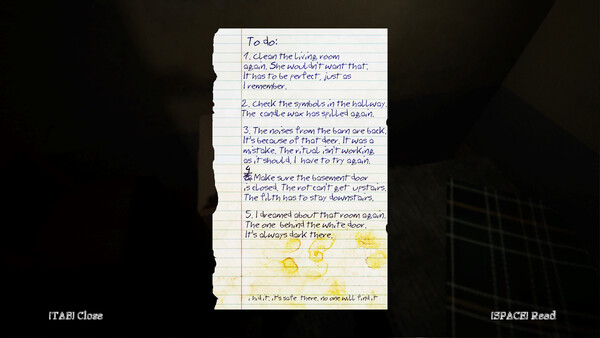 To do:
1. Clean the living room
again. She wouldn't want that.
It has to be perfect, just as
I remember.
2. Check the symbols in the hallway.
The candle wax has spilled again.
3. The noises from the barn are back.
It's because of that deer. It was a
mistake. The ritual isn't working
as it should. I have to try again.
4
Make sure the basement door
is closed. The rot can't get upstairs.
The filth has to stay downstairs.
5. I dreamed about that room again.
The one behind the white door.
It's always dark there.
i hid it, it's safe there, no one will find it
[TAB] Close
[SPACE] Read